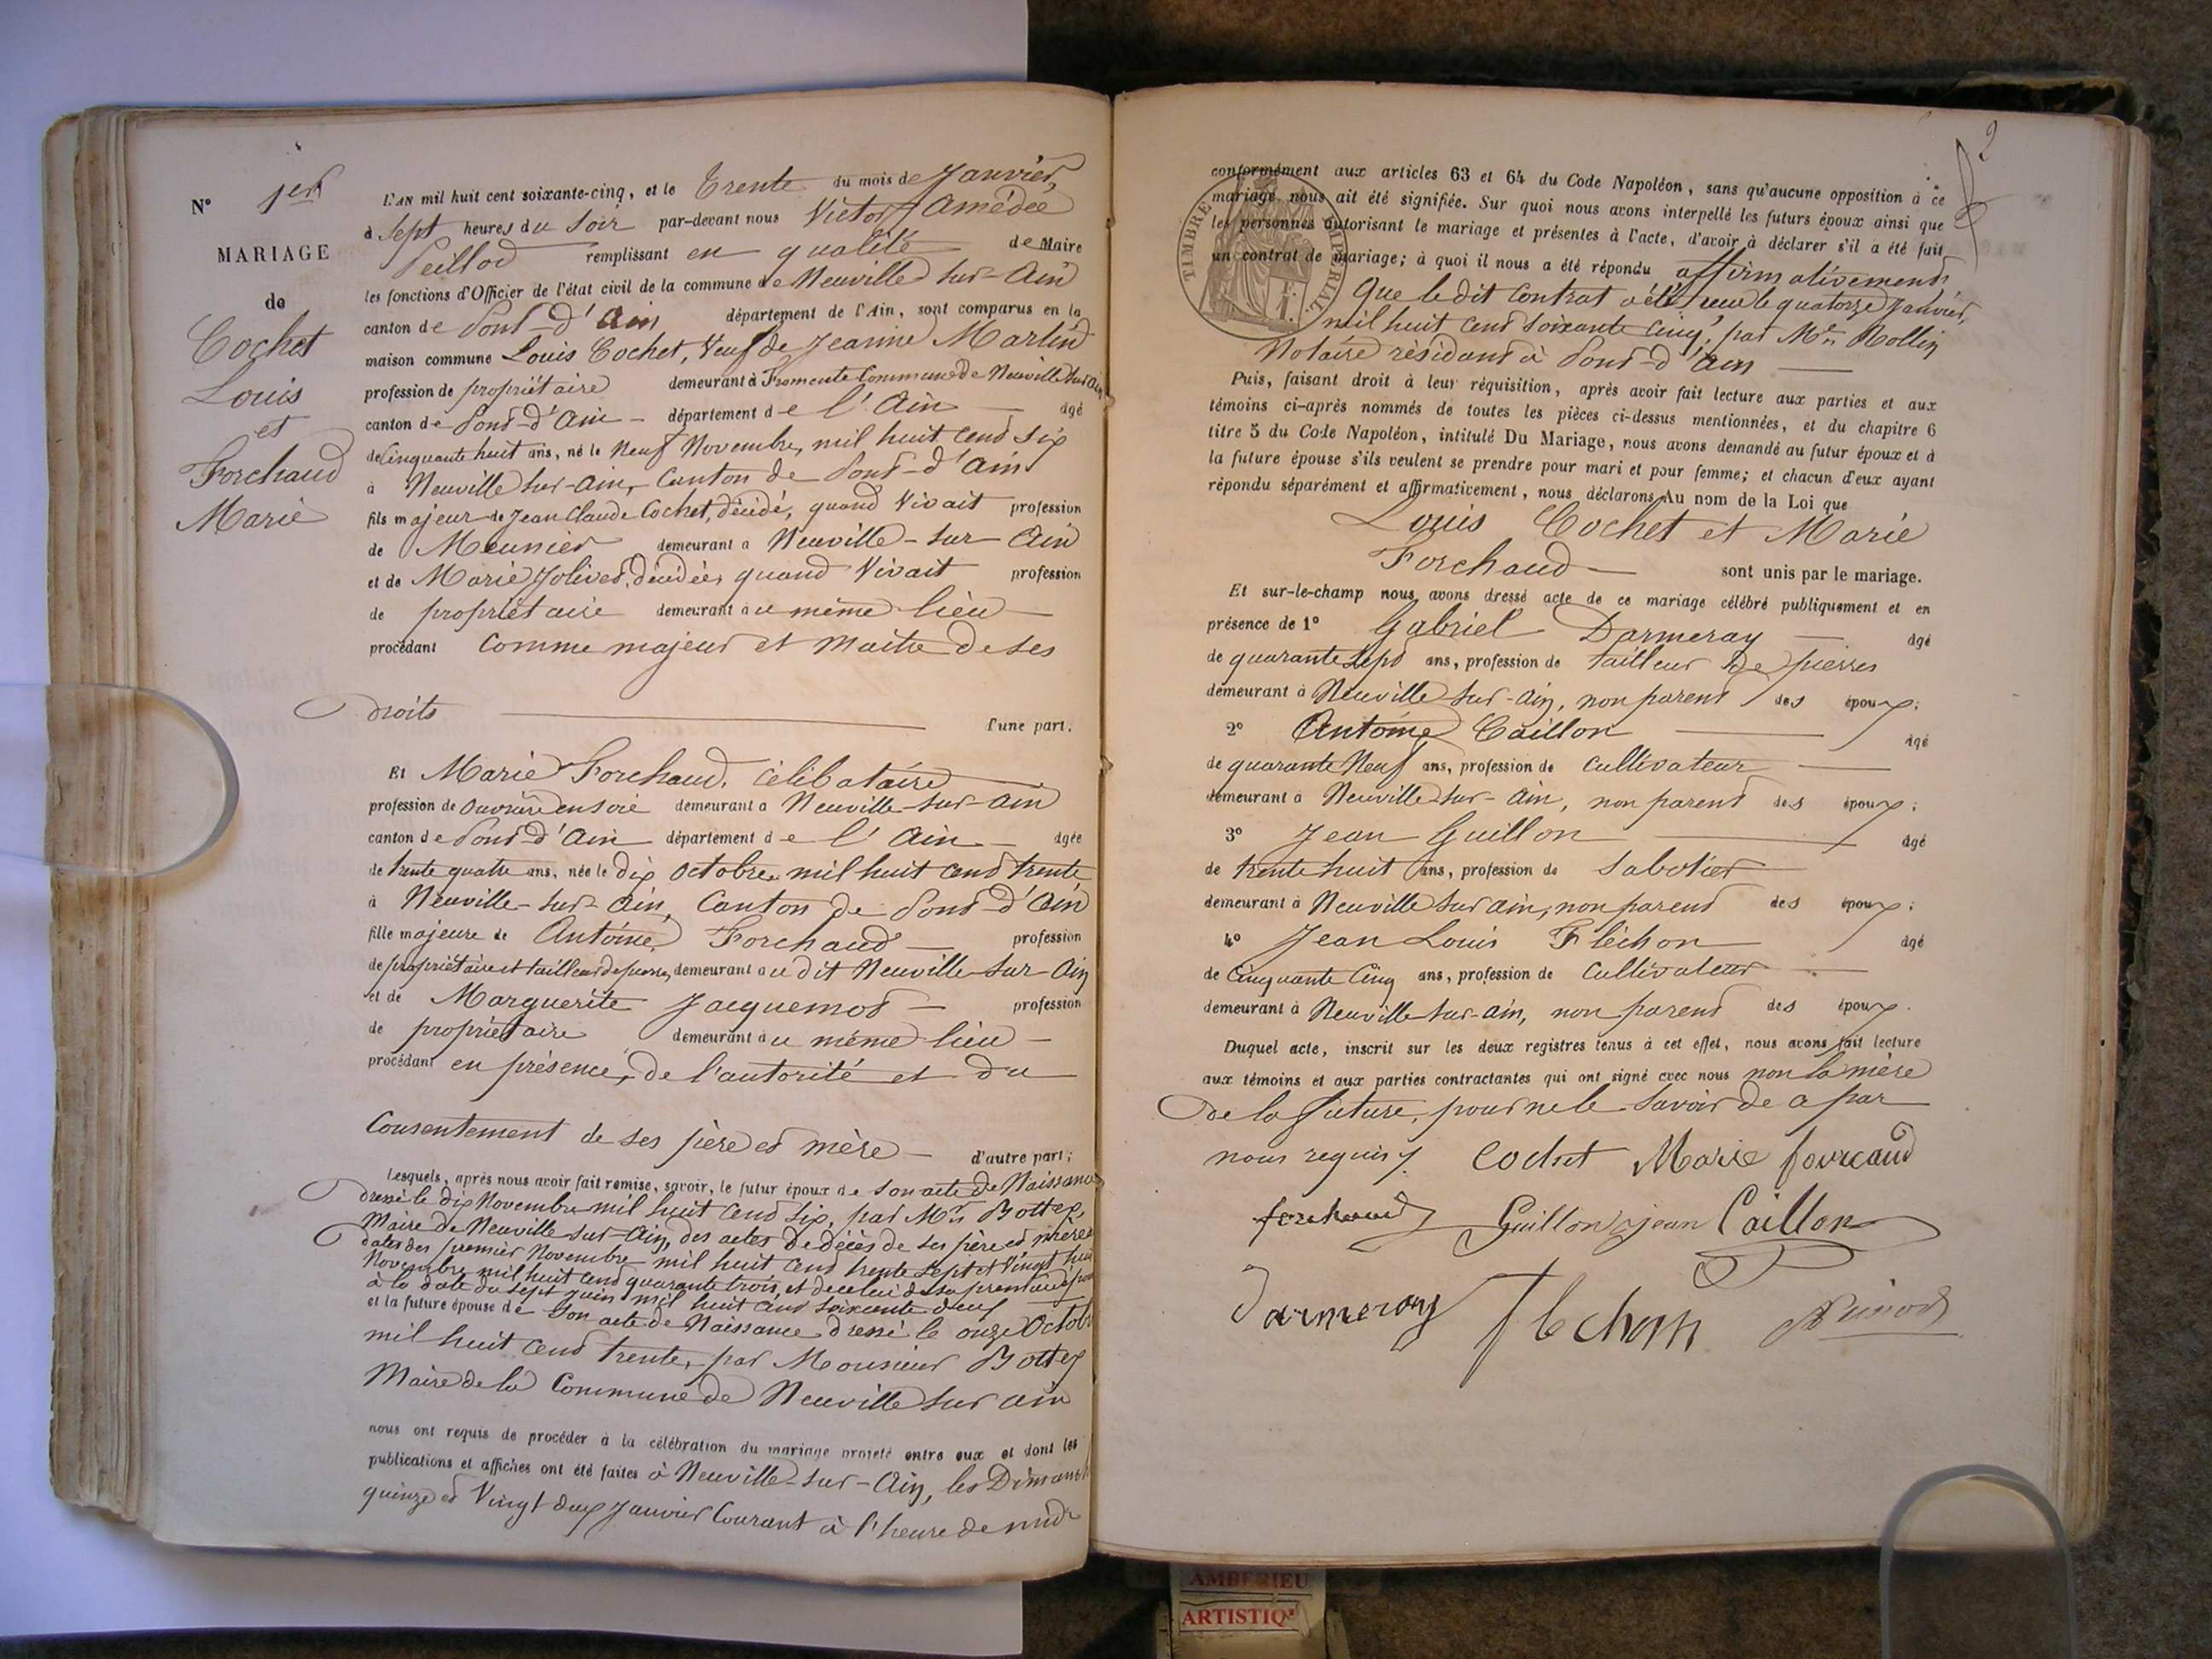 N° 1er
MARIAGE
de
Cochet
Louis
et
Forchaud
Marie
L'AN mil huit cent soixante-cinq, et le Trente du mois de Janvier,
à sept heures du Soir par-devant nous Victor Amédée
Peillod remplissant en qualité de Maire
les fonctions d'Officier de l'état civil de la commune de Neuville sur-Ain
canton de Pont-d'Ain département de l'Ain, sont comparus en la
maison commune Louis Cochet, Veuf de Jeanne Martin
profession de propriétaire demeurant à Fromente Commune de Neuville sur Ain
canton de Pont-d'Ain - département de l'Ain — âgé
de Cinquante huit ans, né le Neuf Novembre, mil huit cent six
à Neuville sur-Ain, Canton de Pont-d'Ain
fils majeur de Jean Claude Cochet, décédé, quand Vivait profession
de Meunier demeurant à Neuville-sur-Ain
et de Marie Jolivet, décédée, quand Vivait profession
de propriétaire demeurant au même lieu —
procédant Comme majeur et Maitre de ses
droits — l'une part.
Et Marie Forchaud, Célibataire —
profession de ouvrière en soie demeurant à Neuville-sur-Ain
canton de Pont-d'Ain département de l'Ain — âgée
de trente quatre ans, née le dix Octobre mil huit cent trente
à Neuville-sur-Ain, Canton de Pont-d'Ain
fille majeure de Antoine Forchaud — profession
de propriétaire et tailleur de pierres, demeurant au dit Neuville-sur-Ain
et de Marguerite Jacquemod — profession
de propriétaire demeurant au même lieu —
procédant en présence, de l'autorité et du
Consentement de ses père et mère — d'autre part;
Lesquels, après nous avoir fait remise, savoir, le futur époux de son acte de Naissance
dressé le dix Novembre mil huit cent six, par Mr Bottex,
Maire de Neuville-sur-Ain, des actes de décès de ses père et mère
dates des premier Novembre mil huit cent trente sept et Vingt huit
Novembre mil huit cent quarante trois, et de celui de sa première épouse
à la date du sept Juin mil huit cent soixante deux
et la future épouse de Son acte de Naissance dressé le onze Octobre
mil huit cent trente, par Monsieur Bottex
Maire de la Commune de Neuville sur Ain
nous ont requis de procéder à la célébration du mariage projeté entre eux et dont les
publications et affiches ont été faites à Neuville-sur-Ain, les Dimanches
quinze et Vingt deux Janvier Courant à l'heure de midi
2
TIMBRE IMPERIAL
conformément aux articles 63 et 64 du Code Napoléon, sans qu'aucune opposition à ce
mariage nous ait été signifiée. Sur quoi nous avons interpellé les futurs époux ainsi que
les personnes autorisant le mariage et présentes à l'acte, d'avoir à déclarer s'il a été fait
un contrat de mariage; à quoi il nous a été répondu affirmativement
Que le dit Contrat a été reçu le quatorze Janvier,
mil huit cent soixante cinq, par Me Rollin
Notaire résidant à Pont-d'Ain —
Puis, faisant droit à leur réquisition, après avoir fait lecture aux parties et aux
témoins ci-après nommés de toutes les pièces ci-dessus mentionnées, et du chapitre 6
titre 5 du Code Napoléon, intitulé Du Mariage, nous avons demandé au futur époux et à
la future épouse s'ils veulent se prendre pour mari et pour femme; et chacun d'eux ayant
répondu séparément et affirmativement, nous déclarons Au nom de la Loi que
Louis Cochet et Marie
Forchaud — sont unis par le mariage.
Et sur-le-champ nous avons dressé acte de ce mariage célébré publiquement et en
présence de 1° Gabriel Darmeray — âgé
de quarante sept ans, profession de tailleur de pierres
demeurant à Neuville sur-Ain, non parent des époux;
2° Antoine Caillon — âgé
de quarante Neuf ans, profession de cultivateur —
demeurant à Neuville-sur-Ain, non parent des époux;
3° Jean Guillon — âgé
de trente huit ans, profession de Sabotier
demeurant à Neuville sur ain, non parent des époux;
4° Jean Louis Fléchon — âgé
de Cinquante Cinq ans, profession de Cultivateur —
demeurant à Neuville sur-ain, non parent des époux.
Duquel acte, inscrit sur les deux registres tenus à cet effet, nous avons fait lecture
aux témoins et aux parties contractantes qui ont signé avec nous non la mère
de la future, pour ne le savoir de a par
nous requis. Cochet Marie fourcaud
forchaud Guillon jean Caillon
Darmeray flechon
AMBERIEU
ARTISTIQ